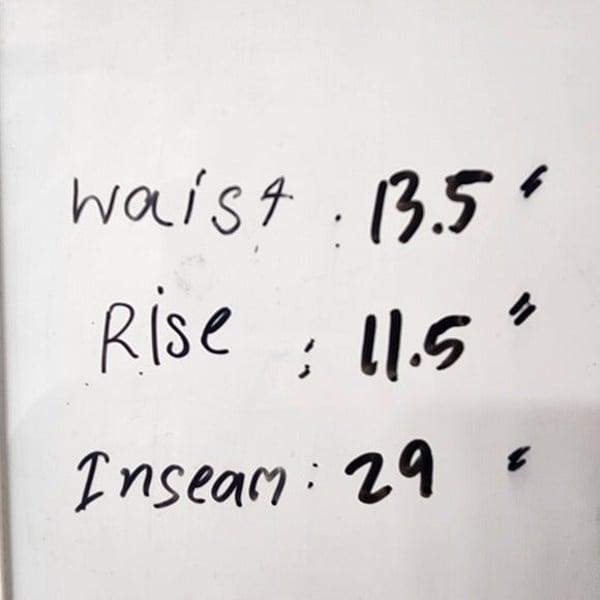 Waist : 13.5"
Rise : 11.5"
Inseam : 29"